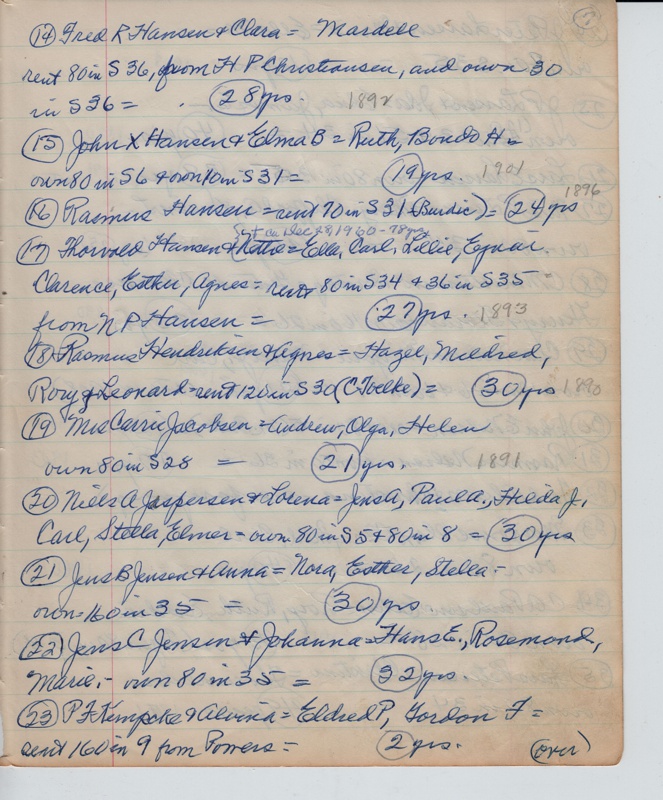 3
(14) Fred R Hansen & Clara = Mardell
rent 80 in S 36, from H P Christiansen, and own 30
in S 36 = (28) yrs. 1892
(15) John X Hansen & Elma B = Ruth, Bondo H =
own 80 in S6 & own 10 in S 31 = (19) yrs. 1901
(16) Rasmus Hansen = rent 70 in S 31 (Burdic) = (24) yrs 1896
Dec 1960 - 78 yrs
(17) Thorvald Hansen & Nettie = Ella, Carl, Lillie, Ejnar
Clarence, Esther, Agnes = rent 80 in S34 & 36 in S 35
from N P Hansen = (27) yrs. 1893
(18) Rasmus Hendriksen & Agnes = Hazel, Mildred,
Rory & Leonard = rent 120 in S 30 (C Toelke) = (30) yrs 1890
(19) Mrs Carrie Jacobsen = Andrew, Olga, Helen
own 80 in S28 = (21) yrs. 1891
(20) Niels A Jaspersen & Lorena = Jens A, Paul A., Hilda J,
Carl, Stella, Elmer = own 80 in S 5 + 80 in 8 = (30) yrs
(21) Jens B Jensen & Anna = Nora, Esther, Stella -
own - 160 in 35 = (30) yrs
(22) Jens C Jensen & Johanna = Hans E., Rosemond,
Marie. - own 80 in 35 = (32) yrs.
(23) P F Kempcke & Alvina = Eldred P, Gordon F =
rent 160 in 9 from Powers = (2) yrs. (over)